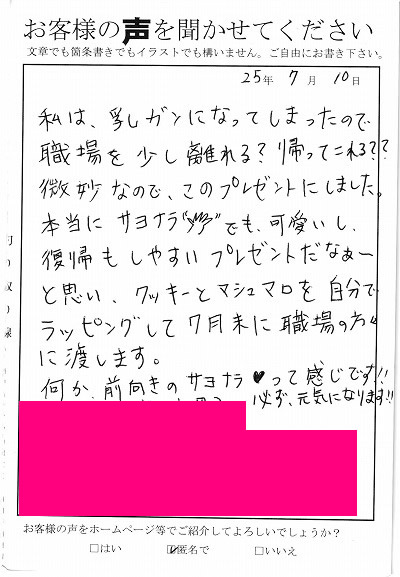 お客様の声を聞かせてください
文章でも箇条書きでもイラストでも構いません。ご自由にお書き下さい。
25年 7月 10日
私は、乳ガンになってしまったので
職場を少し離れる？帰ってこれる??
微妙なので、このプレゼントにしました。
本当にサヨナラでも、可愛いし、
復帰もしやすいプレゼントだなぁー
と思い、クッキーとマシュマロを自分で
ラッピングして7月末に職場の方々
に渡します。
何か、前向きのサヨナラ♥って感じです!!
必ず、元気になります!!
お客様の声をホームページ等でご紹介してよろしいでしょうか？
□はい ☑匿名で □いいえ